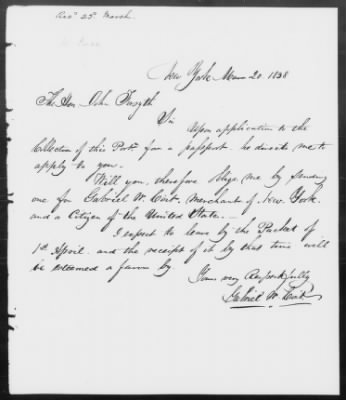 Recd 25 March
New York Mar 20 1838
The Hon John Forsyth
Sir
Upon application to the
Collector of this Port for a passport he directs me to
apply to you.
Will you, therefore oblige me by sending
one for Gabriel W. Merchant of New York.
and a Citizen of the United States.
I expect to leave by the Packet of
1st April and the receipt of it by that time will
be esteemed a favor by
Yours very Respectfully
Gabriel W.